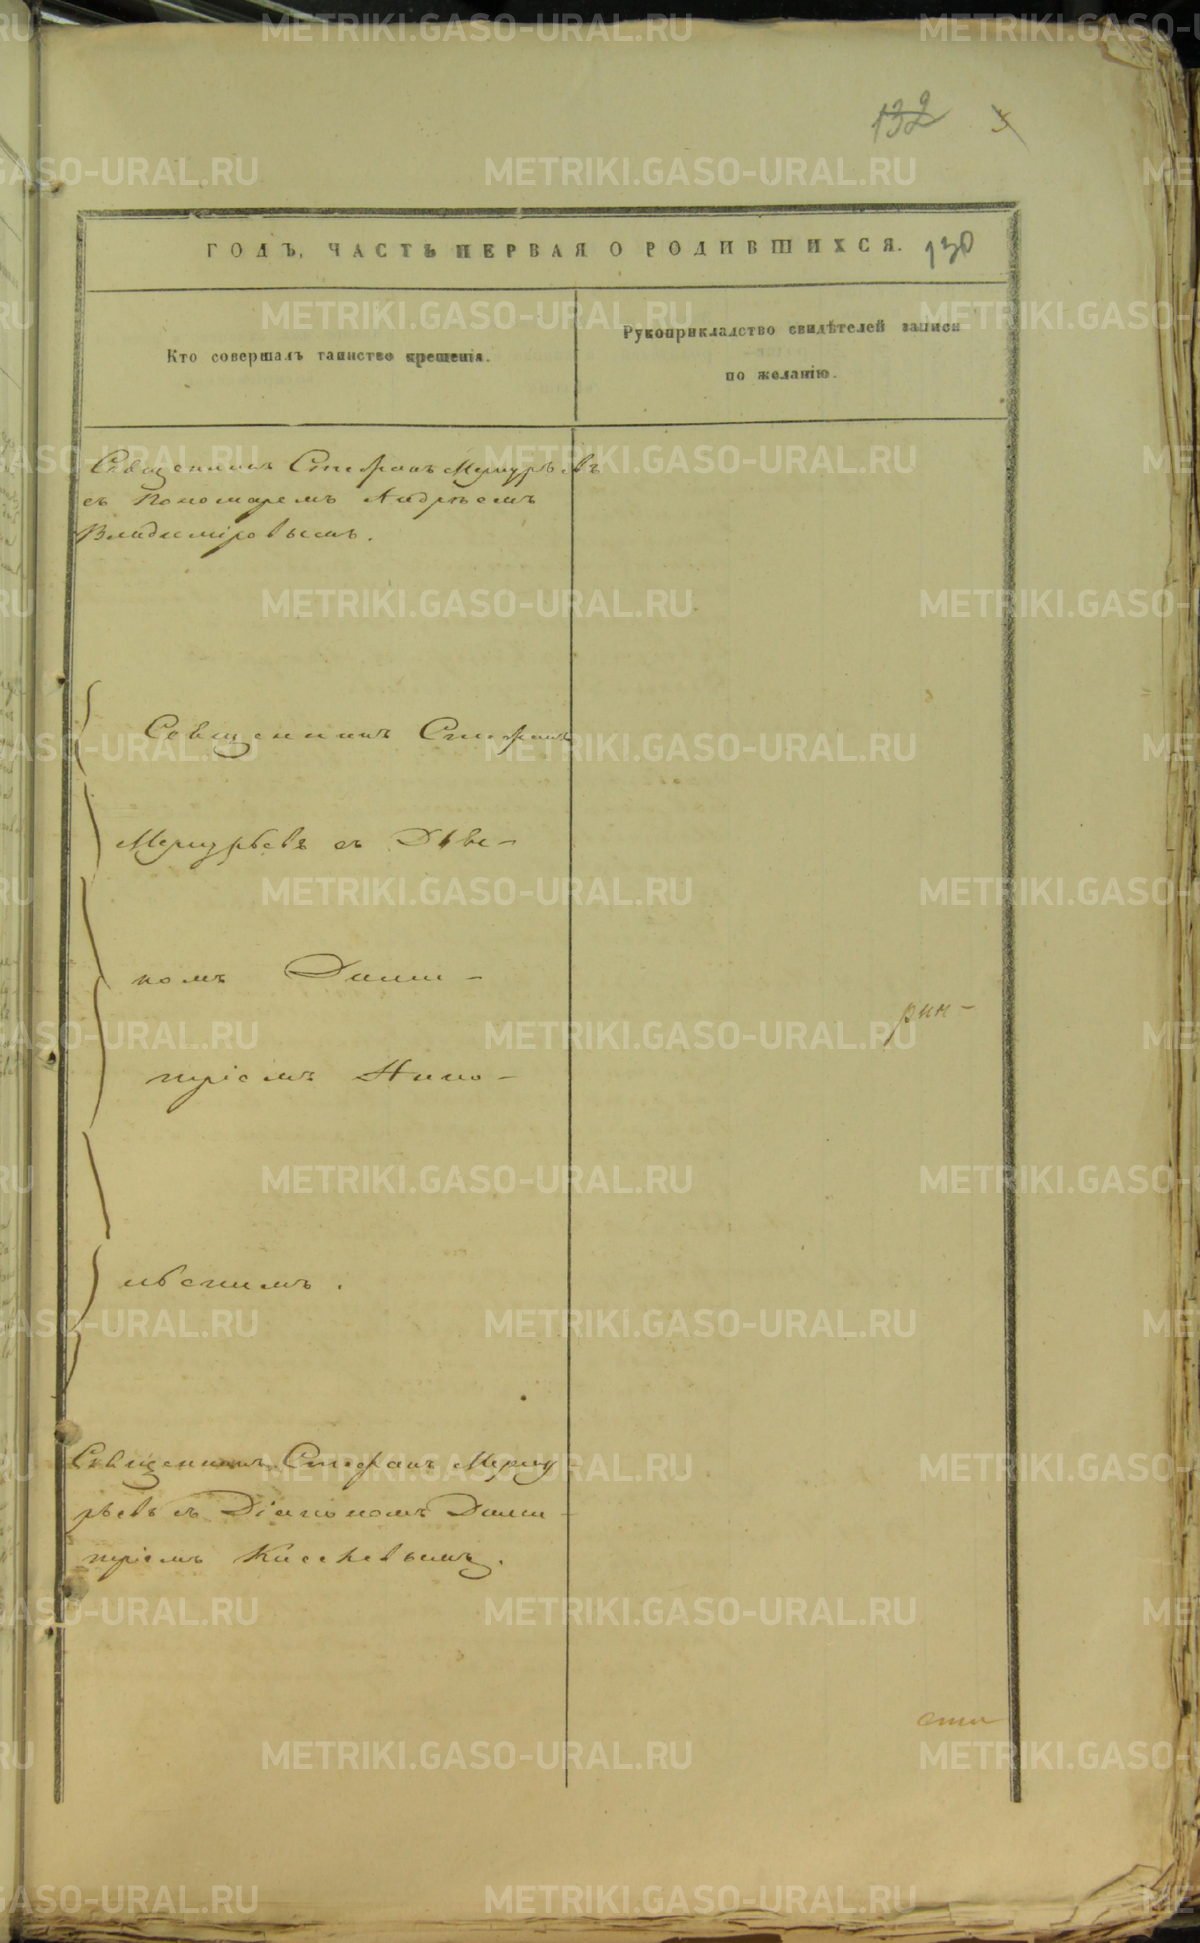 132
130
ГОДЪ, ЧАСТЬ ПЕРВАЯ О РОДИВШИХСЯ.
Кто совершалъ таинство крещенія.
Рукоприкладство свидѣтелей записи
по желанію.
Священникъ Стефанъ Меркурьевъ
съ Пономаремъ Андреемъ
Владиміровымъ.
Священникъ Стефанъ
Меркурьевъ съ
номъ Дими-
тріемъ
рин-
Священникъ Стефанъ Мерку
рьевъ съ Діакономъ Дими-
тріемъ
METRIKI.GASO-URAL.RU